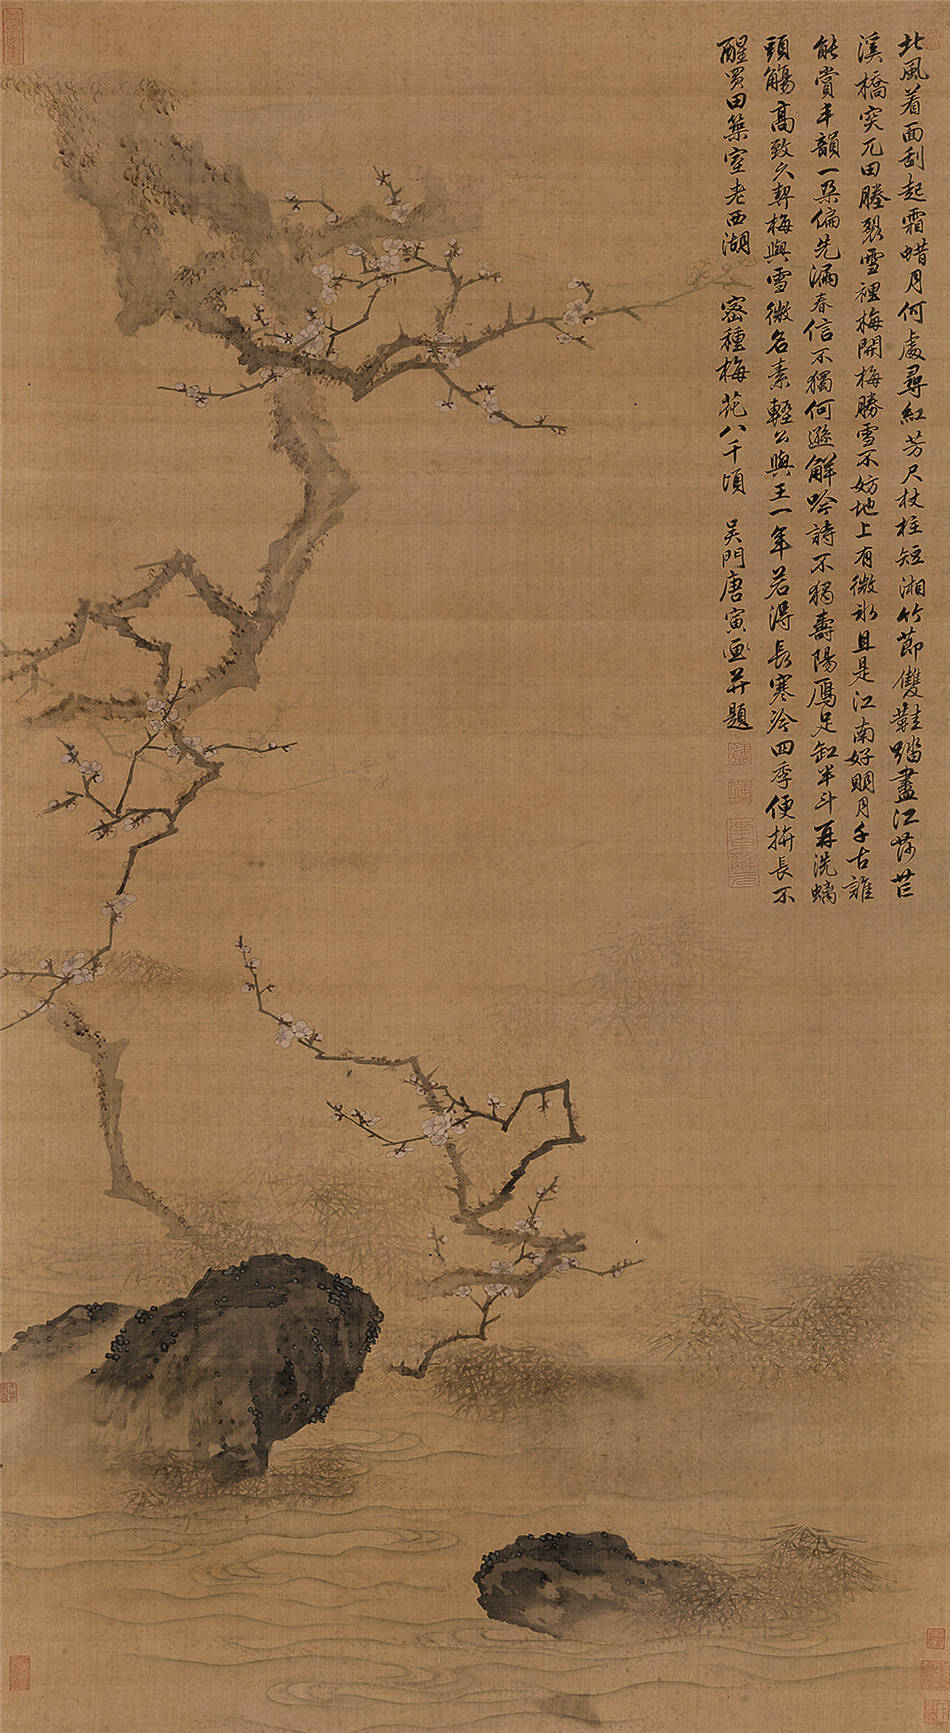 北風着面刮起霜蜡月何處尋紅芳尺杖柱短湘竹節雙鞋踏盡江莎芒
溪橋突兀田塍裂雪裡梅開梅勝雪不妨地上有微冰且是江南好明月千古誰
能賞丰韻一朶偏先漏春信不獨何遜解吟詩不獨壽陽鴈足缸半斗再洗螭
頭觴高致久契梅與雪微名素輕公與王一年若得長寒冷四季便拚長不
醒買田築室老西湖密種梅花八千頃吳門唐寅画并題